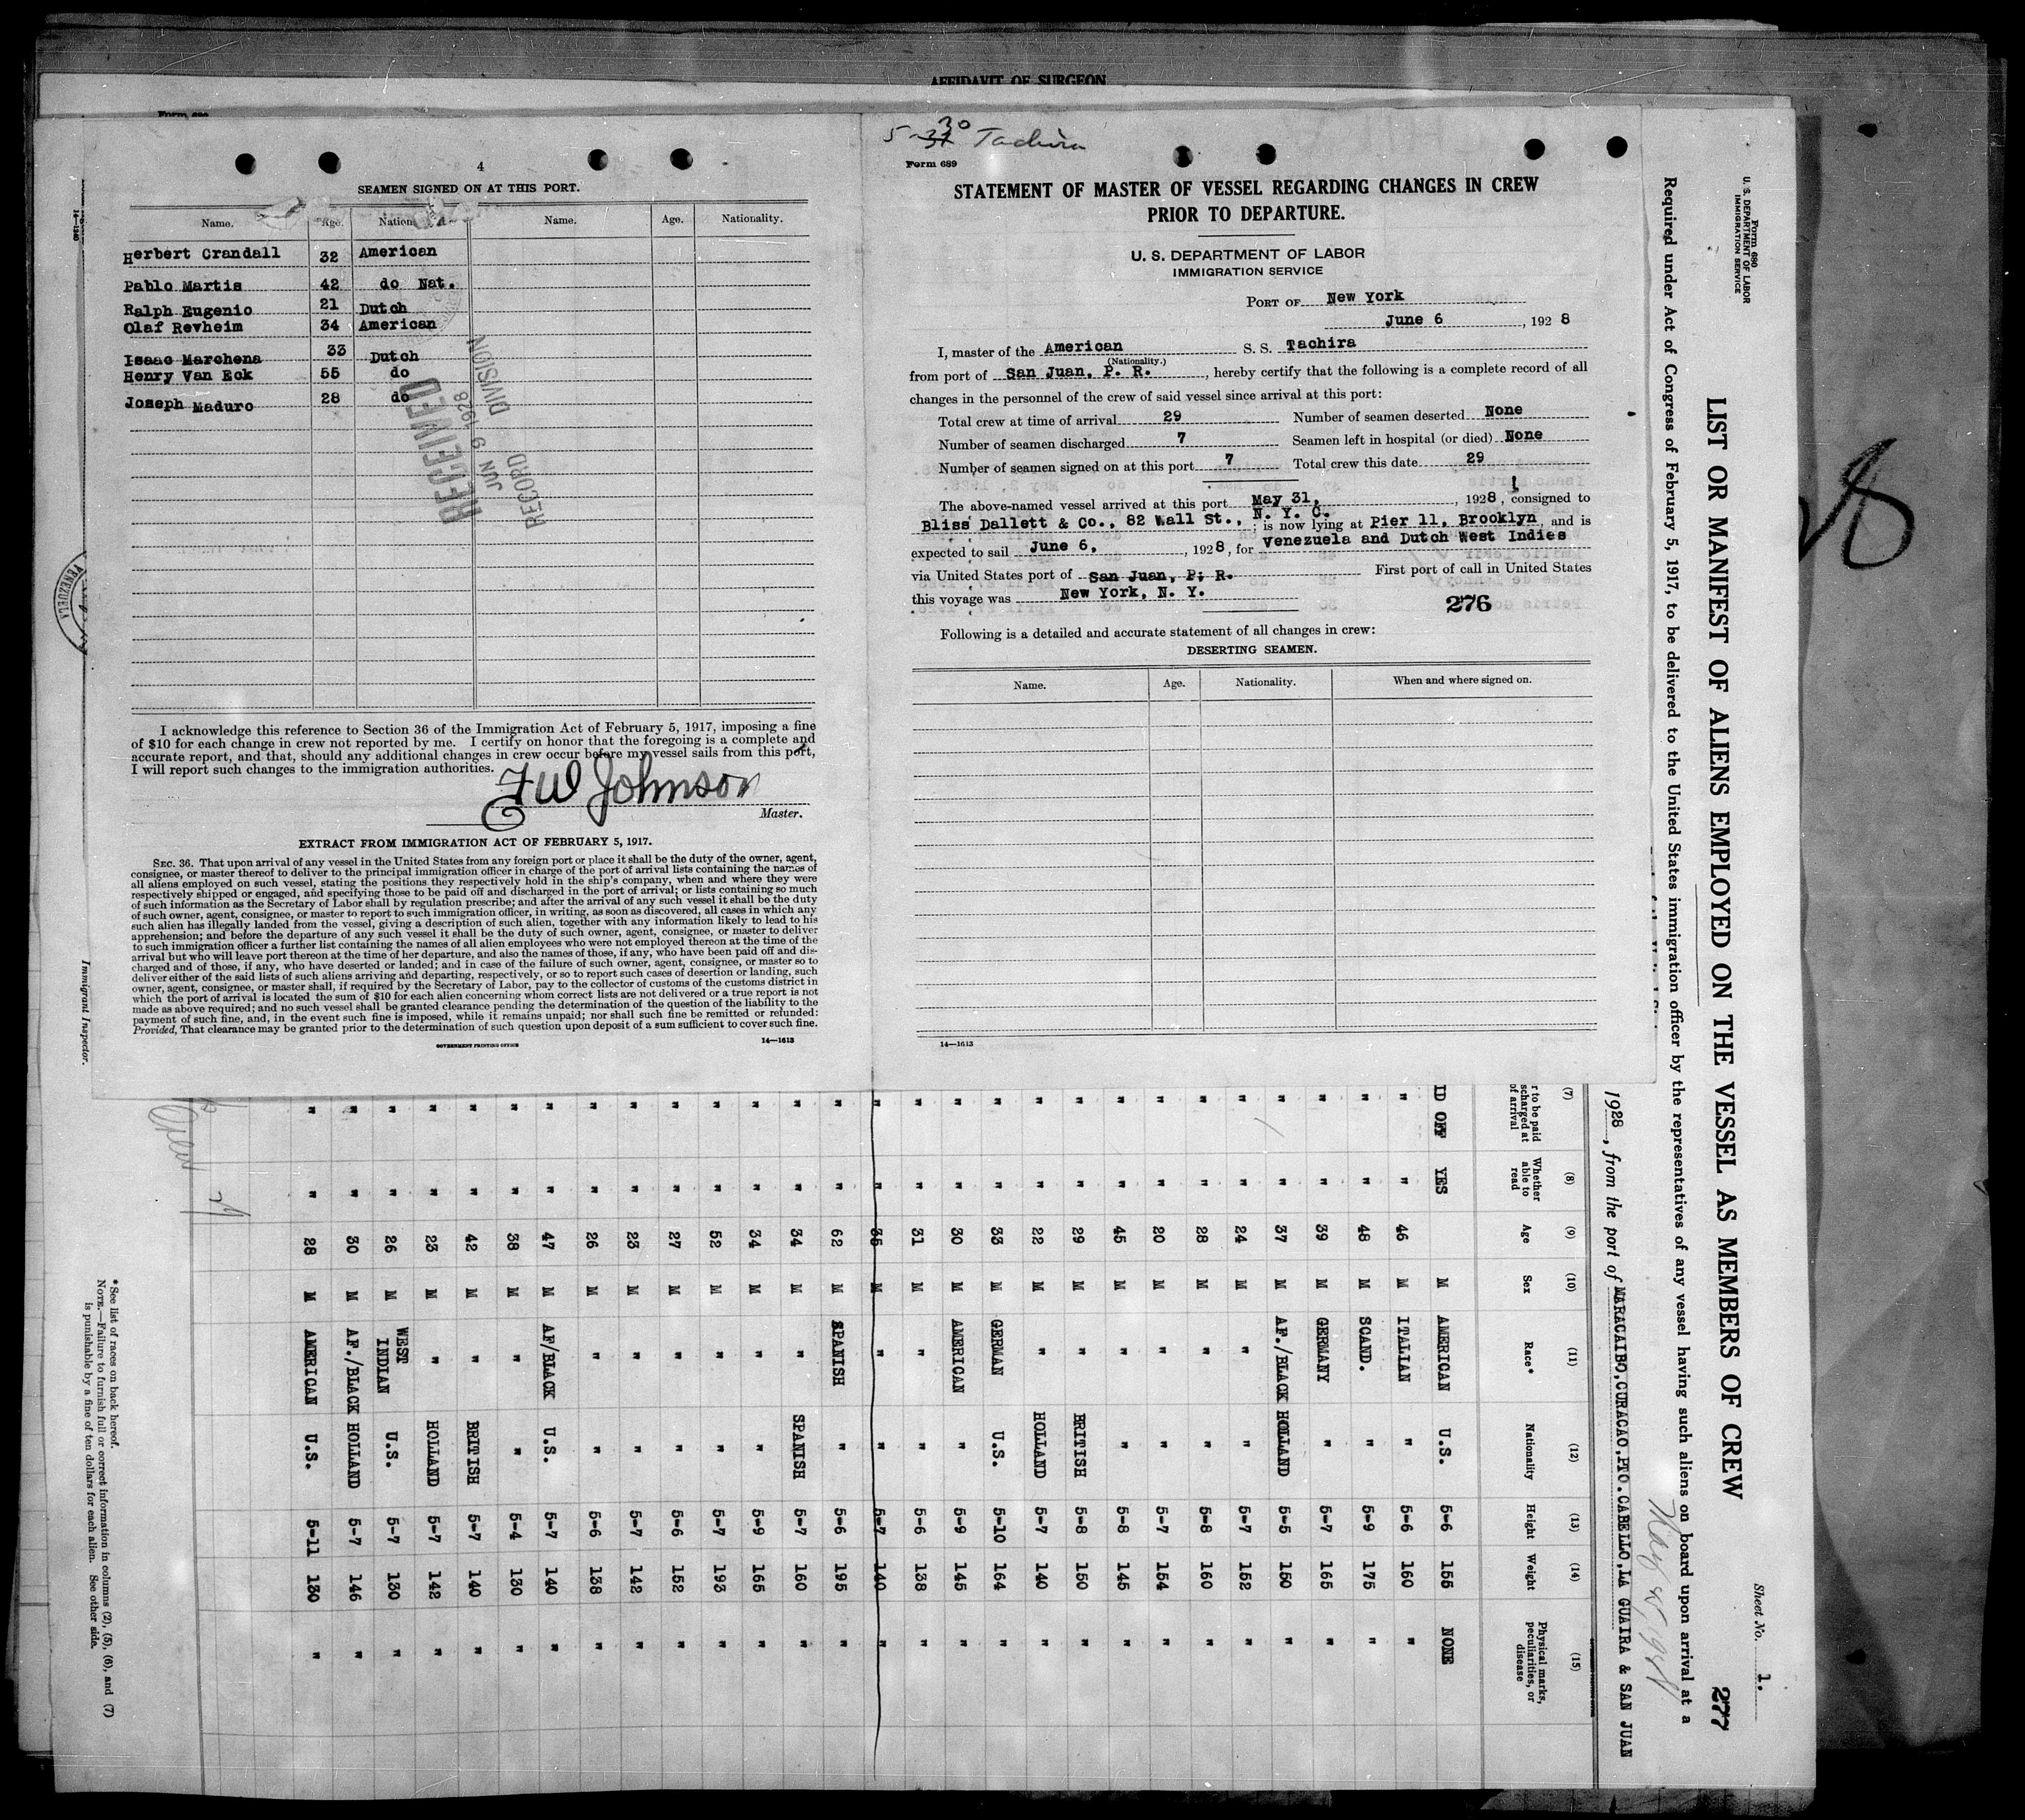 AFFIDAVIT OF SURGEON
Form 689
4
SEAMEN SIGNED ON AT THIS PORT.
Name. Age. Nation Name. Age. Nationality.
Herbert Crandall 32 American
Pablo Martis 42 do Nat.
Ralph Eugenio 21 Dutch
Olaf Revheim 34 American
Isaac Marchena 33 Dutch
Henry Van Eck 55 do
Joseph Maduro 28 do
RECEIVED
JUN 9 1928
RECORD DIVISION
I acknowledge this reference to Section 36 of the Immigration Act of February 5, 1917, imposing a fine
of $10 for each change in crew not reported by me. I certify on honor that the foregoing is a complete and
accurate report, and that, should any additional changes in crew occur before my vessel sails from this port,
I will report such changes to the immigration authorities.
F W Johnson
Master.
EXTRACT FROM IMMIGRATION ACT OF FEBRUARY 5, 1917.
SEC. 36. That upon arrival of any vessel in the United States from any foreign port or place it shall be the duty of the owner, agent,
consignee, or master thereof to deliver to the principal immigration officer in charge of the port of arrival lists containing the names of
all aliens employed on such vessel, stating the positions they respectively hold in the ship's company, when and where they were
respectively shipped or engaged, and specifying those to be paid off and discharged in the port of arrival; or lists containing so much
of such information as the Secretary of Labor shall by regulation prescribe; and after the arrival of any such vessel it shall be the duty
of such owner, agent, consignee, or master to report to such immigration officer, in writing, as soon as discovered, all cases in which any
such alien has illegally landed from the vessel, giving a description of such alien, together with any information likely to lead to his
apprehension; and before the departure of any such vessel it shall be the duty of such owner, agent, consignee, or master to deliver
to such immigration officer a further list containing the names of all alien employees who were not employed thereon at the time of the
arrival but who will leave port thereon at the time of her departure, and also the names of those, if any, who have been paid off and dis-
charged and of those, if any, who have deserted or landed; and in case of the failure of such owner, agent, consignee, or master so to
deliver either of the said lists of such aliens arriving and departing, respectively, or so to report such cases of desertion or landing, such
owner, agent, consignee, or master shall, if required by the Secretary of Labor, pay to the collector of customs of the customs district in
which the port of arrival is located the sum of $10 for each alien concerning whom correct lists are not delivered or a true report is not
made as above required; and no such vessel shall be granted clearance pending the determination of the question of the liability to the
payment of such fine, and, in the event such fine is imposed, while it remains unpaid; nor shall such fine be remitted or refunded:
Provided, That clearance may be granted prior to the determination of such question upon deposit of a sum sufficient to cover such fine.
GOVERNMENT PRINTING OFFICE
14—1613
5-30 Tachira
Form 689
STATEMENT OF MASTER OF VESSEL REGARDING CHANGES IN CREW
PRIOR TO DEPARTURE.
U. S. DEPARTMENT OF LABOR
IMMIGRATION SERVICE
PORT OF New York
June 6, 1928
I, master of the American S. S. Tachira
(Nationality.)
from port of San Juan, P. R., hereby certify that the following is a complete record of all
changes in the personnel of the crew of said vessel since arrival at this port:
Total crew at time of arrival 29 Number of seamen deserted None
Number of seamen discharged 7 Seamen left in hospital (or died) None
Number of seamen signed on at this port 7 Total crew this date 29
The above-named vessel arrived at this port May 31, 1928, consigned to
Bliss Dallett & Co., 82 Wall St., N. Y. C.; is now lying at Pier 11, Brooklyn, and is
expected to sail June 6, 1928, for Venezuela and Dutch West Indies
via United States port of San Juan, P. R. First port of call in United States
this voyage was New York, N. Y.
276
Following is a detailed and accurate statement of all changes in crew:
DESERTING SEAMEN.
Name. Age. Nationality. When and where signed on.
14—1613
Form 680
U. S. DEPARTMENT OF LABOR
IMMIGRATION SERVICE
Sheet No. 1.
277
LIST OR MANIFEST OF ALIENS EMPLOYED ON THE VESSEL AS MEMBERS OF CREW
Required under Act of Congress of February 5, 1917, to be delivered to the United States immigration officer by the representatives of any vessel having such aliens on board upon arrival at a
1928, from the port of MARACAIBO, CURACAO, PTO. CABELLO, LA GUAIRA & SAN JUAN
(7) (8) (9) (10) (11) (12) (13) (14) (15)
r to be paid scharged at of arrival Whether able to read Age Sex Race* Nationality Height Weight Physical marks, peculiarities, or disease
ID OFF YES M AMERICAN U.S. 5-6 155 NONE
" " 46 M ITALIAN " 5-6 160 "
" " 48 M SCAND. " 5-9 175 "
" " 39 M GERMANY " 5-7 165 "
" " 37 M AF./BLACK HOLLAND 5-5 150 "
" " 24 M " " 5-7 152 "
" " 28 M " " 5-8 160 "
" " 20 M " " 5-7 154 "
" " 45 M " " 5-8 145 "
" " 29 M " BRITISH 5-8 150 "
" " 22 M " HOLLAND 5-7 140 "
" " 33 M GERMAN U.S. 5-10 164 "
" " 30 M AMERICAN " 5-9 145 "
" " 31 M " " 5-6 138 "
" " 35 M " " 5-7 140 "
" " 62 M SPANISH " 5-6 195 "
" " 34 M " SPANISH 5-7 160 "
" " 34 M " " 5-9 165 "
" " 52 M " " 5-7 193 "
" " 27 M " " 5-6 152 "
" " 23 M " " 5-7 142 "
" " 26 M " " 5-6 138 "
" " 47 M AF/BLACK U.S. 5-7 140 "
" " 38 M " " 5-4 130 "
" " 42 M " BRITISH 5-7 140 "
" " 23 M " HOLLAND 5-7 142 "
" " 26 M WEST INDIAN U.S. 5-7 130 "
" " 30 M AF./BLACK HOLLAND 5-7 146 "
" " 28 M AMERICAN U.S. 5-11 130 "
*See list of races on back hereof.
NOTE.—Failure to furnish full or correct information in columns (2), (5), (6), and (7)
is punishable by a fine of ten dollars for each alien. See other side.
Immigrant Inspector.
14—1240
VENEZUELA